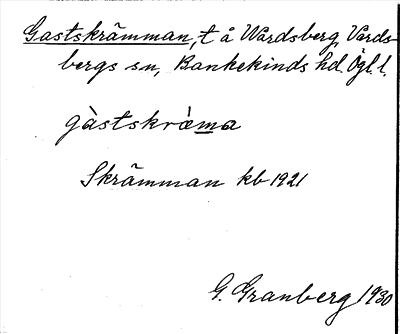 Gastskrämman, t å Vårdsberg, Vårds-
bergs sn, Bankekinds hd. Ögl. l.
gàstskrὲma
Skrämman kb 1921
G. Granberg 1930